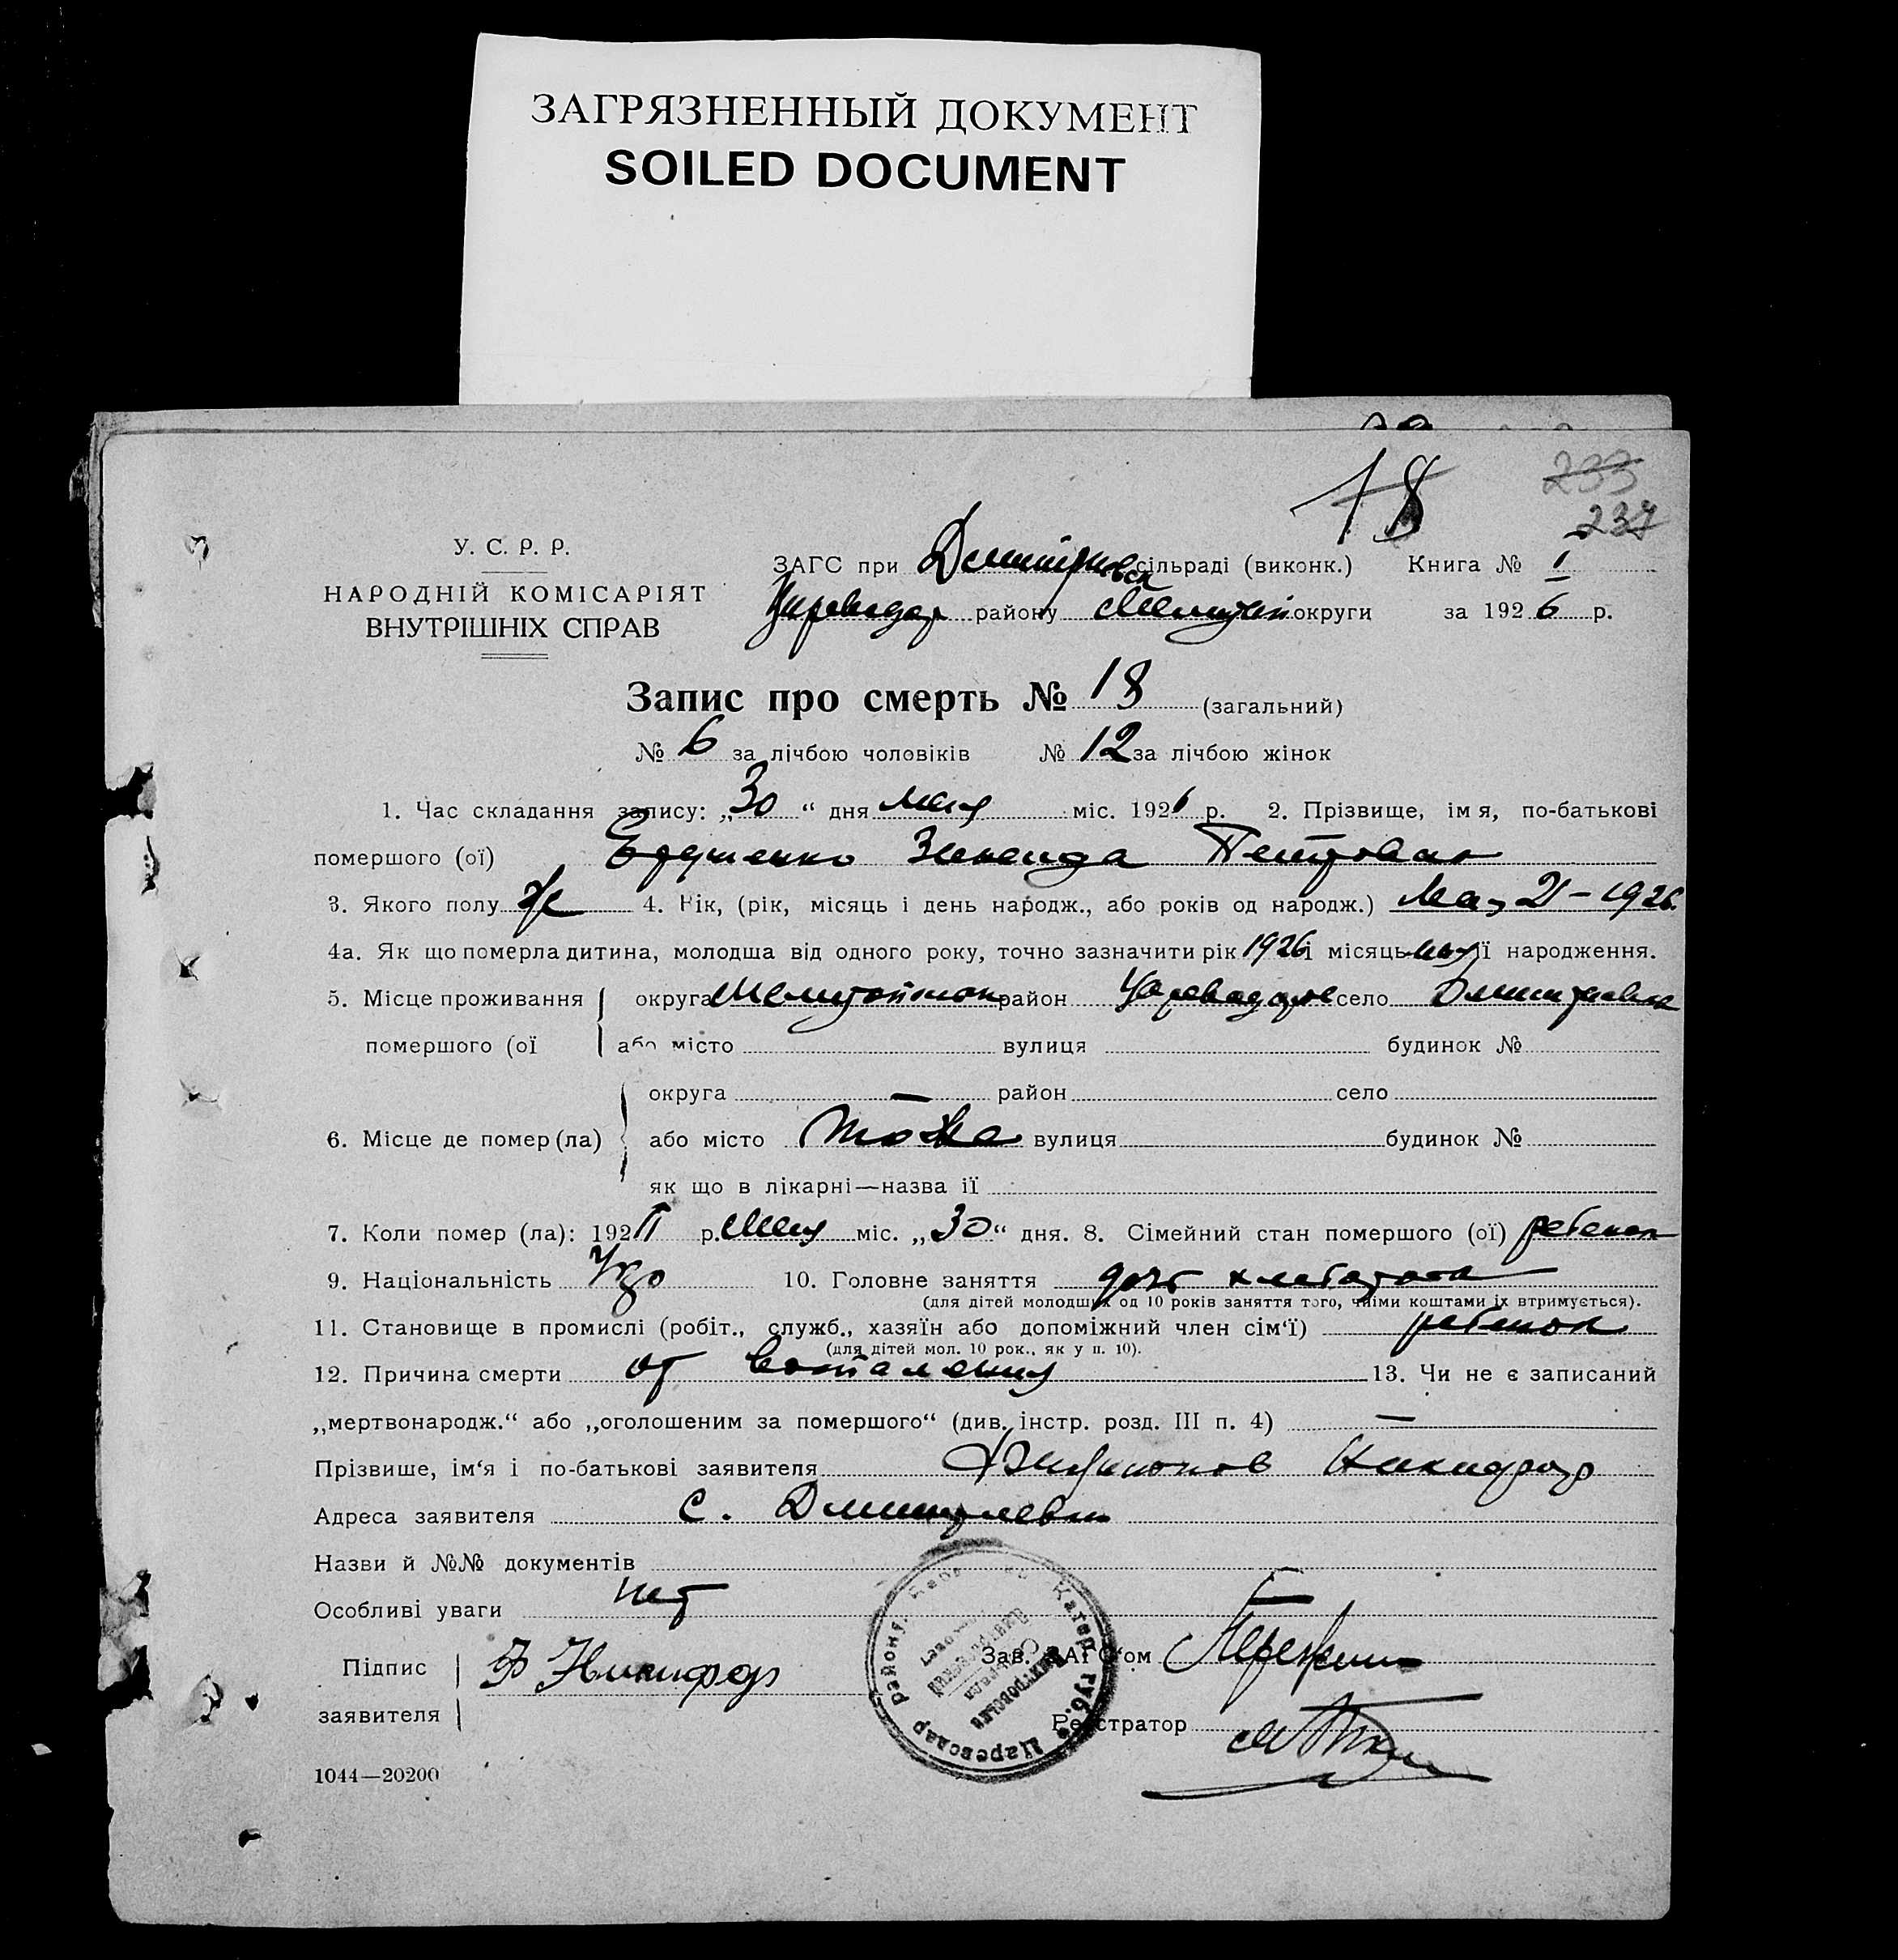 ЗАГРЯЗНЕННЫЙ ДОКУМЕНТ
SOILED DOCUMENT
18
233
237
У. С. Р. Р.
НАРОДНІЙ КОМІСАРІЯТ
ВНУТРІШНІХ СПРАВ
ЗАГС при Дмитровск сільраді (виконк.) Книга № I
Цареводар району Мелитоп округи за 1926 р.
Запис про смерть № 18 (загальний)
№ 6 за лічбою чоловіків № 12 за лічбою жінок
1. Час складання запису: „30“ дня мая міс. 1926 р. 2. Прізвище, імя, по-батькові
помершого (ої) Зинаида Петровна
3. Якого полу ж 4. Рік, (рік, місяць і день народж., або років од народж.) Мая 21 – 1926.
4а. Як що померла дитина, молодша від одного року, точно зазначити рік 1926 і місяць мая її народження.
5. Місце проживання округа район село
помершого (ої або місто вулиця будинок №
округа район село
6. Місце де помер (ла) або місто тоже вулиця будинок №
як що в лікарні—назва ії
7. Коли помер (ла): 192 р. Мая міс. „30“ дня. 8. Сімейний стан помершого (ої) ребенок
9. Національність Укр 10. Головне заняття дочь хлебороба
(для дітей молодших од 10 років заняття того, чиїми коштами їх втримується).
11. Становище в промислі (робіт., служб., хазяїн або допоміжний член сім‘ї) ребенок
(для дітей мол. 10 рок., як у п. 10).
12. Причина смерти от воспаления 13. Чи не є записаний
„мертвонародж.“ або „оголошеним за помершого“ (див. інстр. розд. III п. 4) —
Прізвише, ім‘я і по-батькові заявителя
Адреса заявителя с. Дмитровка
Назви й №№ документів
Особливі уваги нет
Підпис
заявителя
Зав. ЗАГС‘ом
Реєстратор
1044—20200